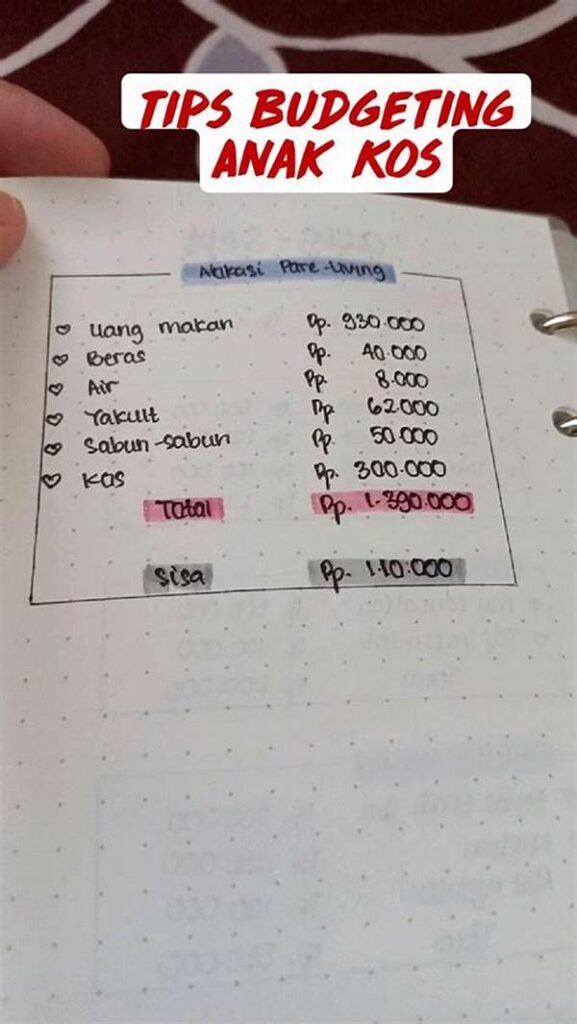 TIPS BUDGETING
ANAK KOS
Alokasi Pare-Living
Uang makan Rp. 930.000
Beras Rp. 40.000
Air Rp. 8.000
Yakult Rp. 62.000
Sabun-sabun Rp. 50.000
Kos Rp. 300.000
Total Rp. 1.390.000
Sisa Rp. 110.000